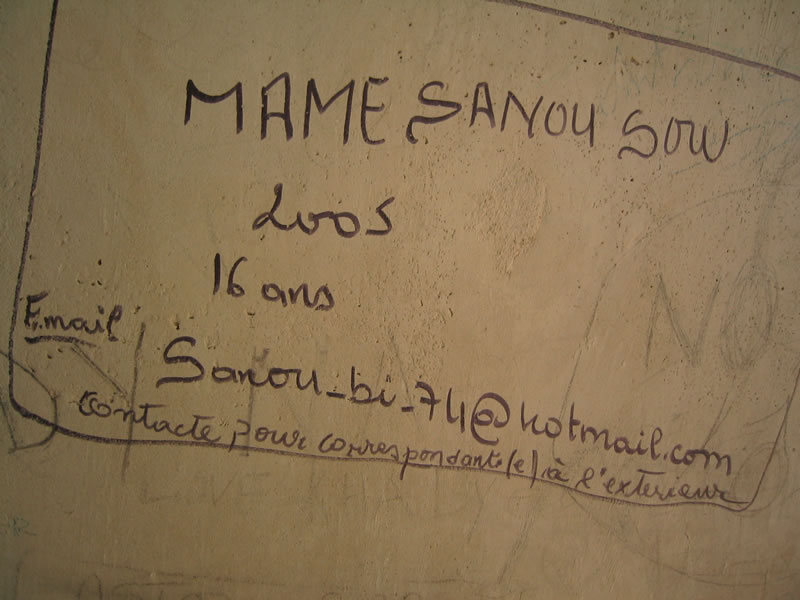 MAME SANOU SOW
2005
16 ans
Email
Sanou_bi_74@hotmail.com
Contacte pour correspondant(e) à l'exterieur
NO